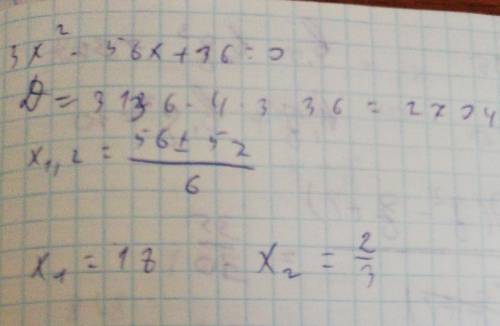 3x² - 56x + 36 = 0
D = 3136 - 4 · 3 · 36 = 2704
x₁,₂ = (56 ± 52) / 6
x₁ = 18 x₂ = 2/3